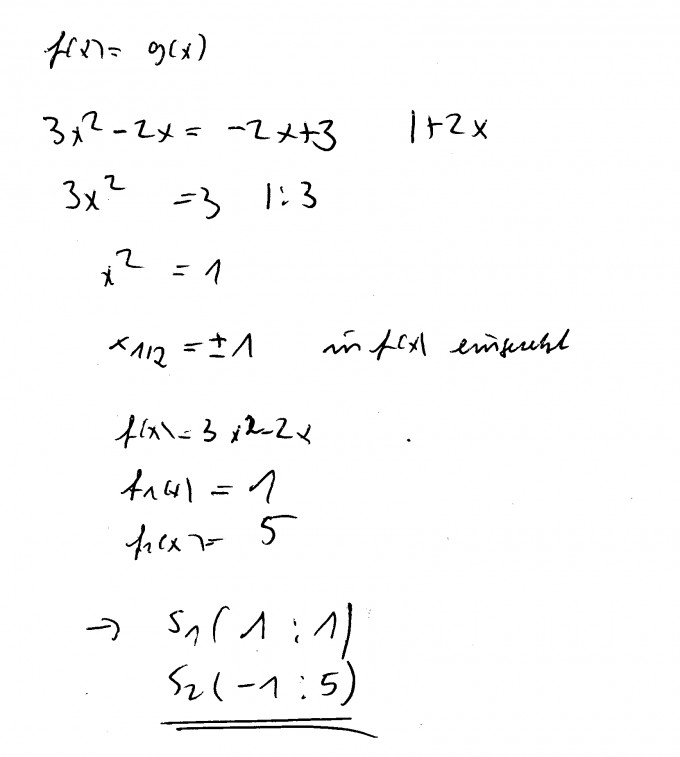 f(x) = g(x)
3x² - 2x = -2x+3 |+2x
3x² = 3 |:3
x² = 1
x1/2 = ±1 in f(x) eingesetzt
f(x) = 3x²-2x
f1(x) = 1
f2(x) = 5
→ S1(1:1)
S2(-1:5)